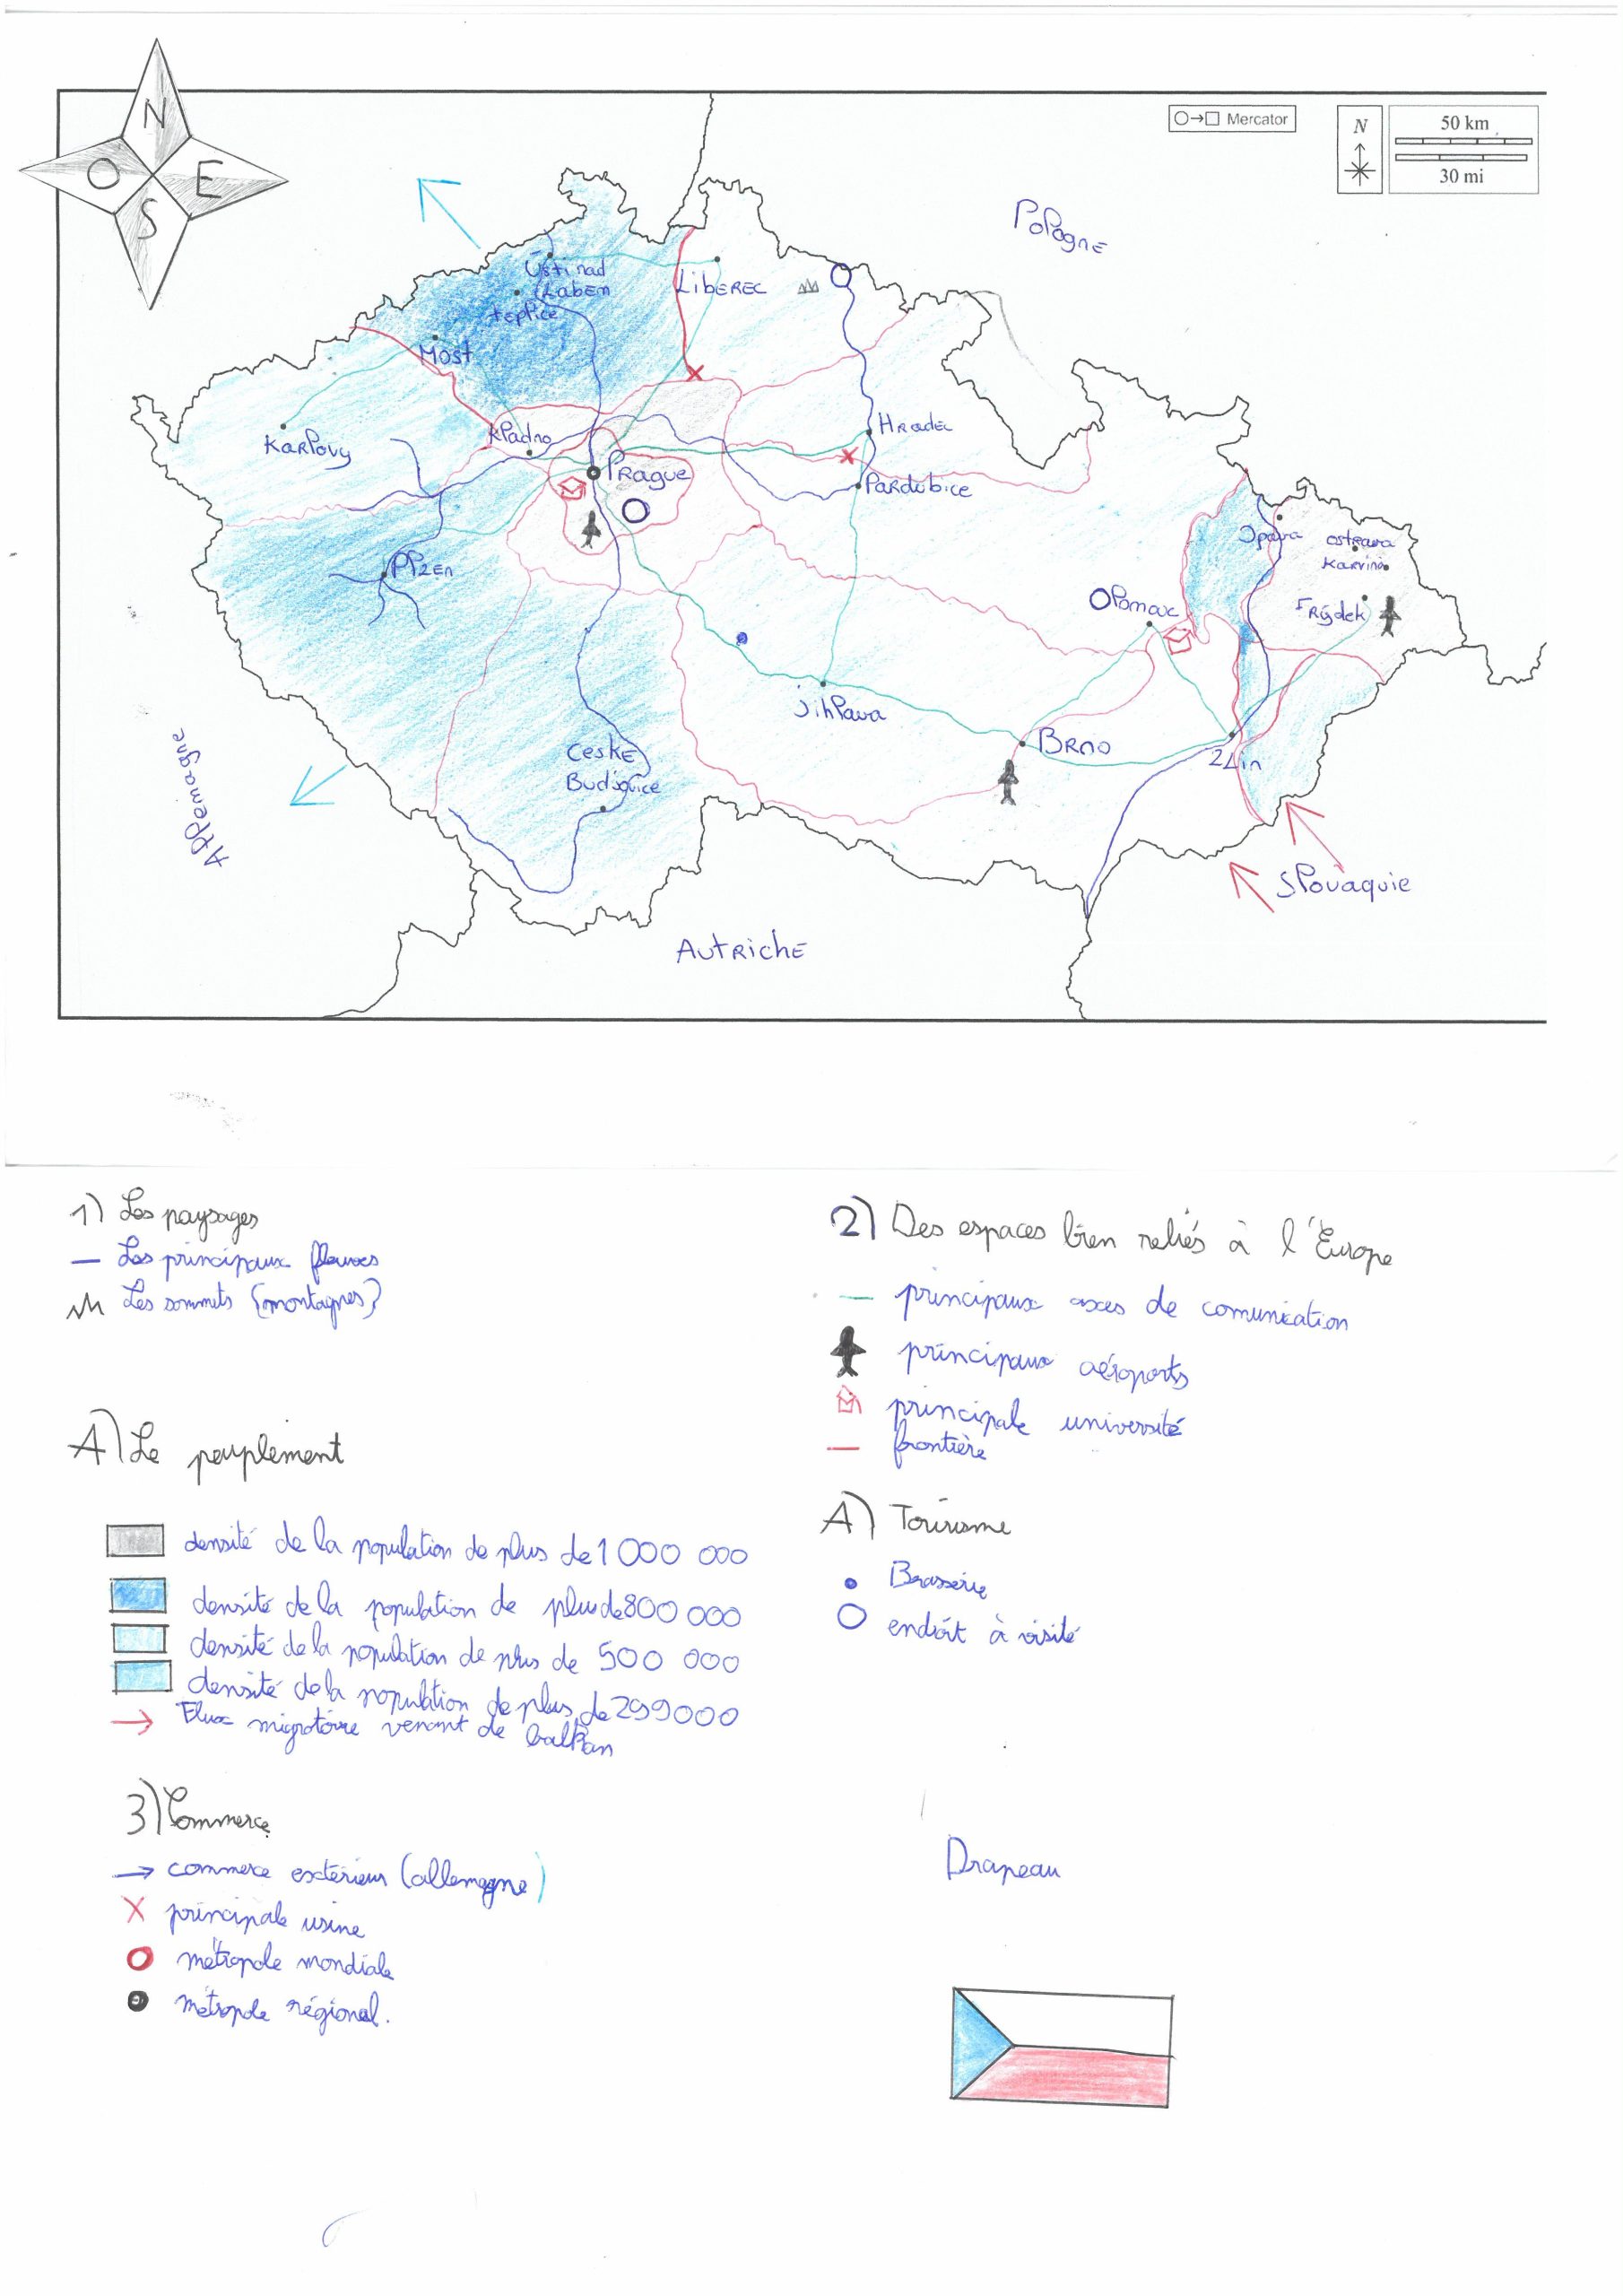 N
O
E
S
Mercator
N
50 km
30 mi
Pologne
Ústi nad
Labem
teplice
LibEREC
Most
Karlovy
Kladno
Hradec
Prague
Pardubice
Plzen
Opava
ostrava
Karvina
Frýdek
Olomouc
jihlava
Brno
Zlin
Ceske
Allemagne
Slovaquie
Autriche
1) Les paysages
Les principaux fleuves
Les sommets (montagnes)
A) Le peuplement
densité de la population de plus de 1 000 000
densité de la population de plus de 800 000
densité de la population de plus de 500 000
densité de la population de plus de 299000
Flux migratoire venant de
balkan
3) Commerce
commerce extérieur (allemagne)
principale usine
métropole mondiale
métropole régional.
2) Des espaces bien reliés à l'Europe
principaux axes de comunication
principaux aéroports
principale université
frontière
A) Tourisme
Brasserie
endroit à visité
Drapeau